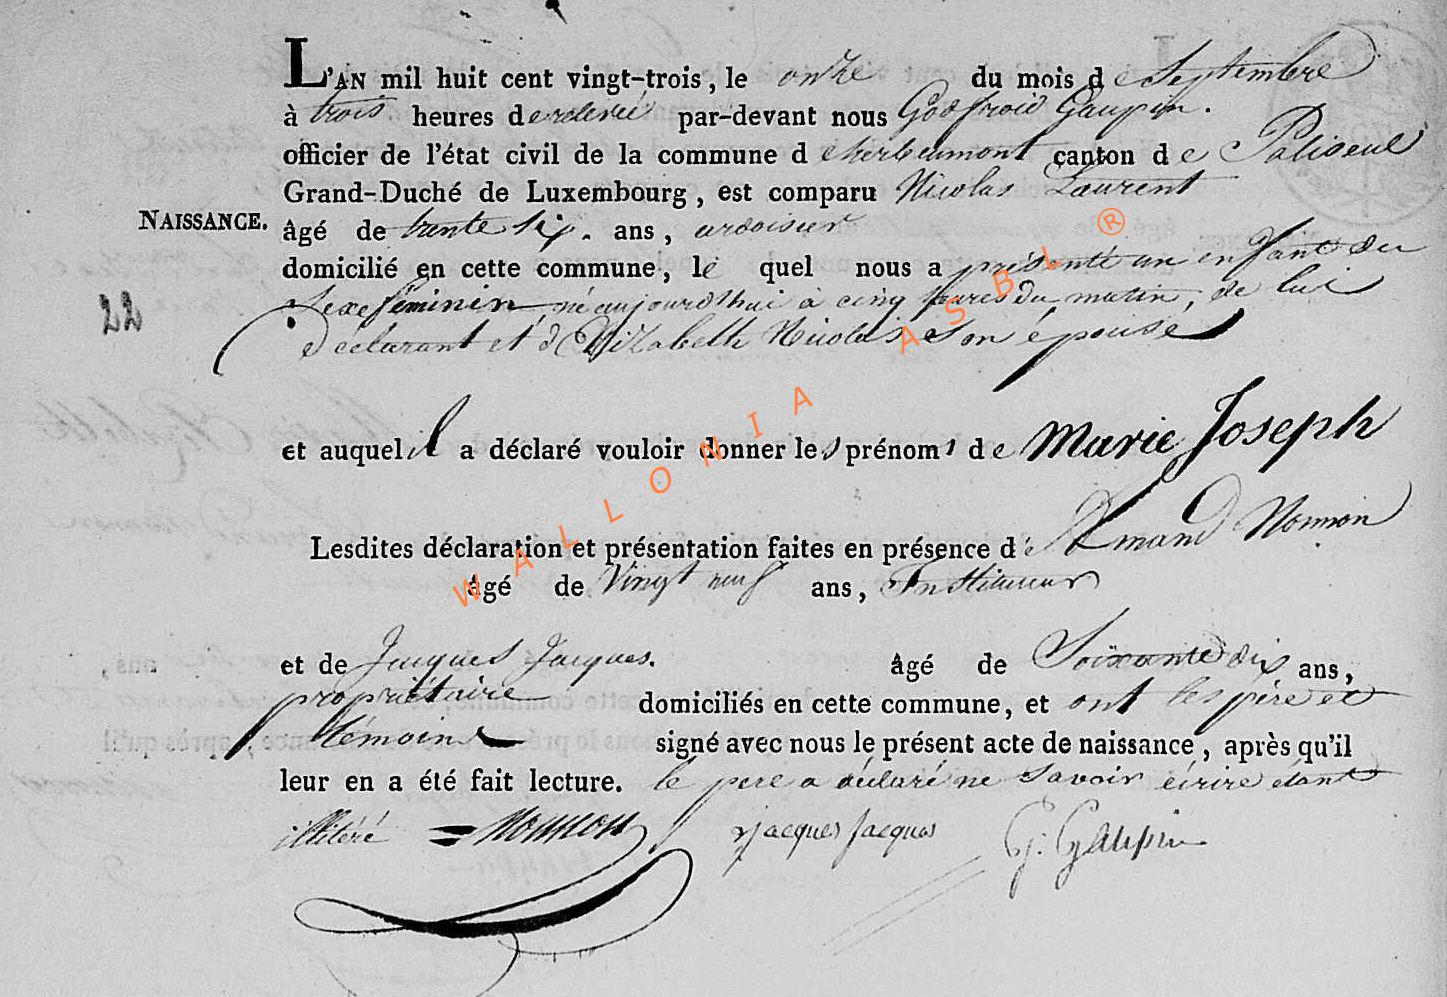 L'AN mil huit cent vingt-trois, le onze du mois de Septembre
à trois heures de relevée par-devant nous Godfroid Gaupin.
officier de l'état civil de la commune d'herbeumont canton de Paliseul
Grand-Duché de Luxembourg, est comparu Nicolas Laurent
NAISSANCE.
âgé de trente six. ans, ardoisier
domicilié en cette commune, le quel nous a présenté un enfant du
22
Sexe féminin, né aujourd'hui à cinq heures du matin, de lui
déclarant et d'Elizabeth Nicolas son épouse
et auquel il a déclaré vouloir donner les prénoms de Marie Joseph
Lesdites déclaration et présentation faites en présence de Amand
âgé de Vingt neuf ans, Instituteur
et de Jacques Jacques. âgé de Soixante dix ans,
propriétaire domiciliés en cette commune, et ont les père et
témoins signé avec nous le présent acte de naissance, après qu'il
leur en a été fait lecture. le pere a déclaré ne savoir écrire étant
illitéré Jacques Jacques G. Gaupin
WALLONIA ASBL ®